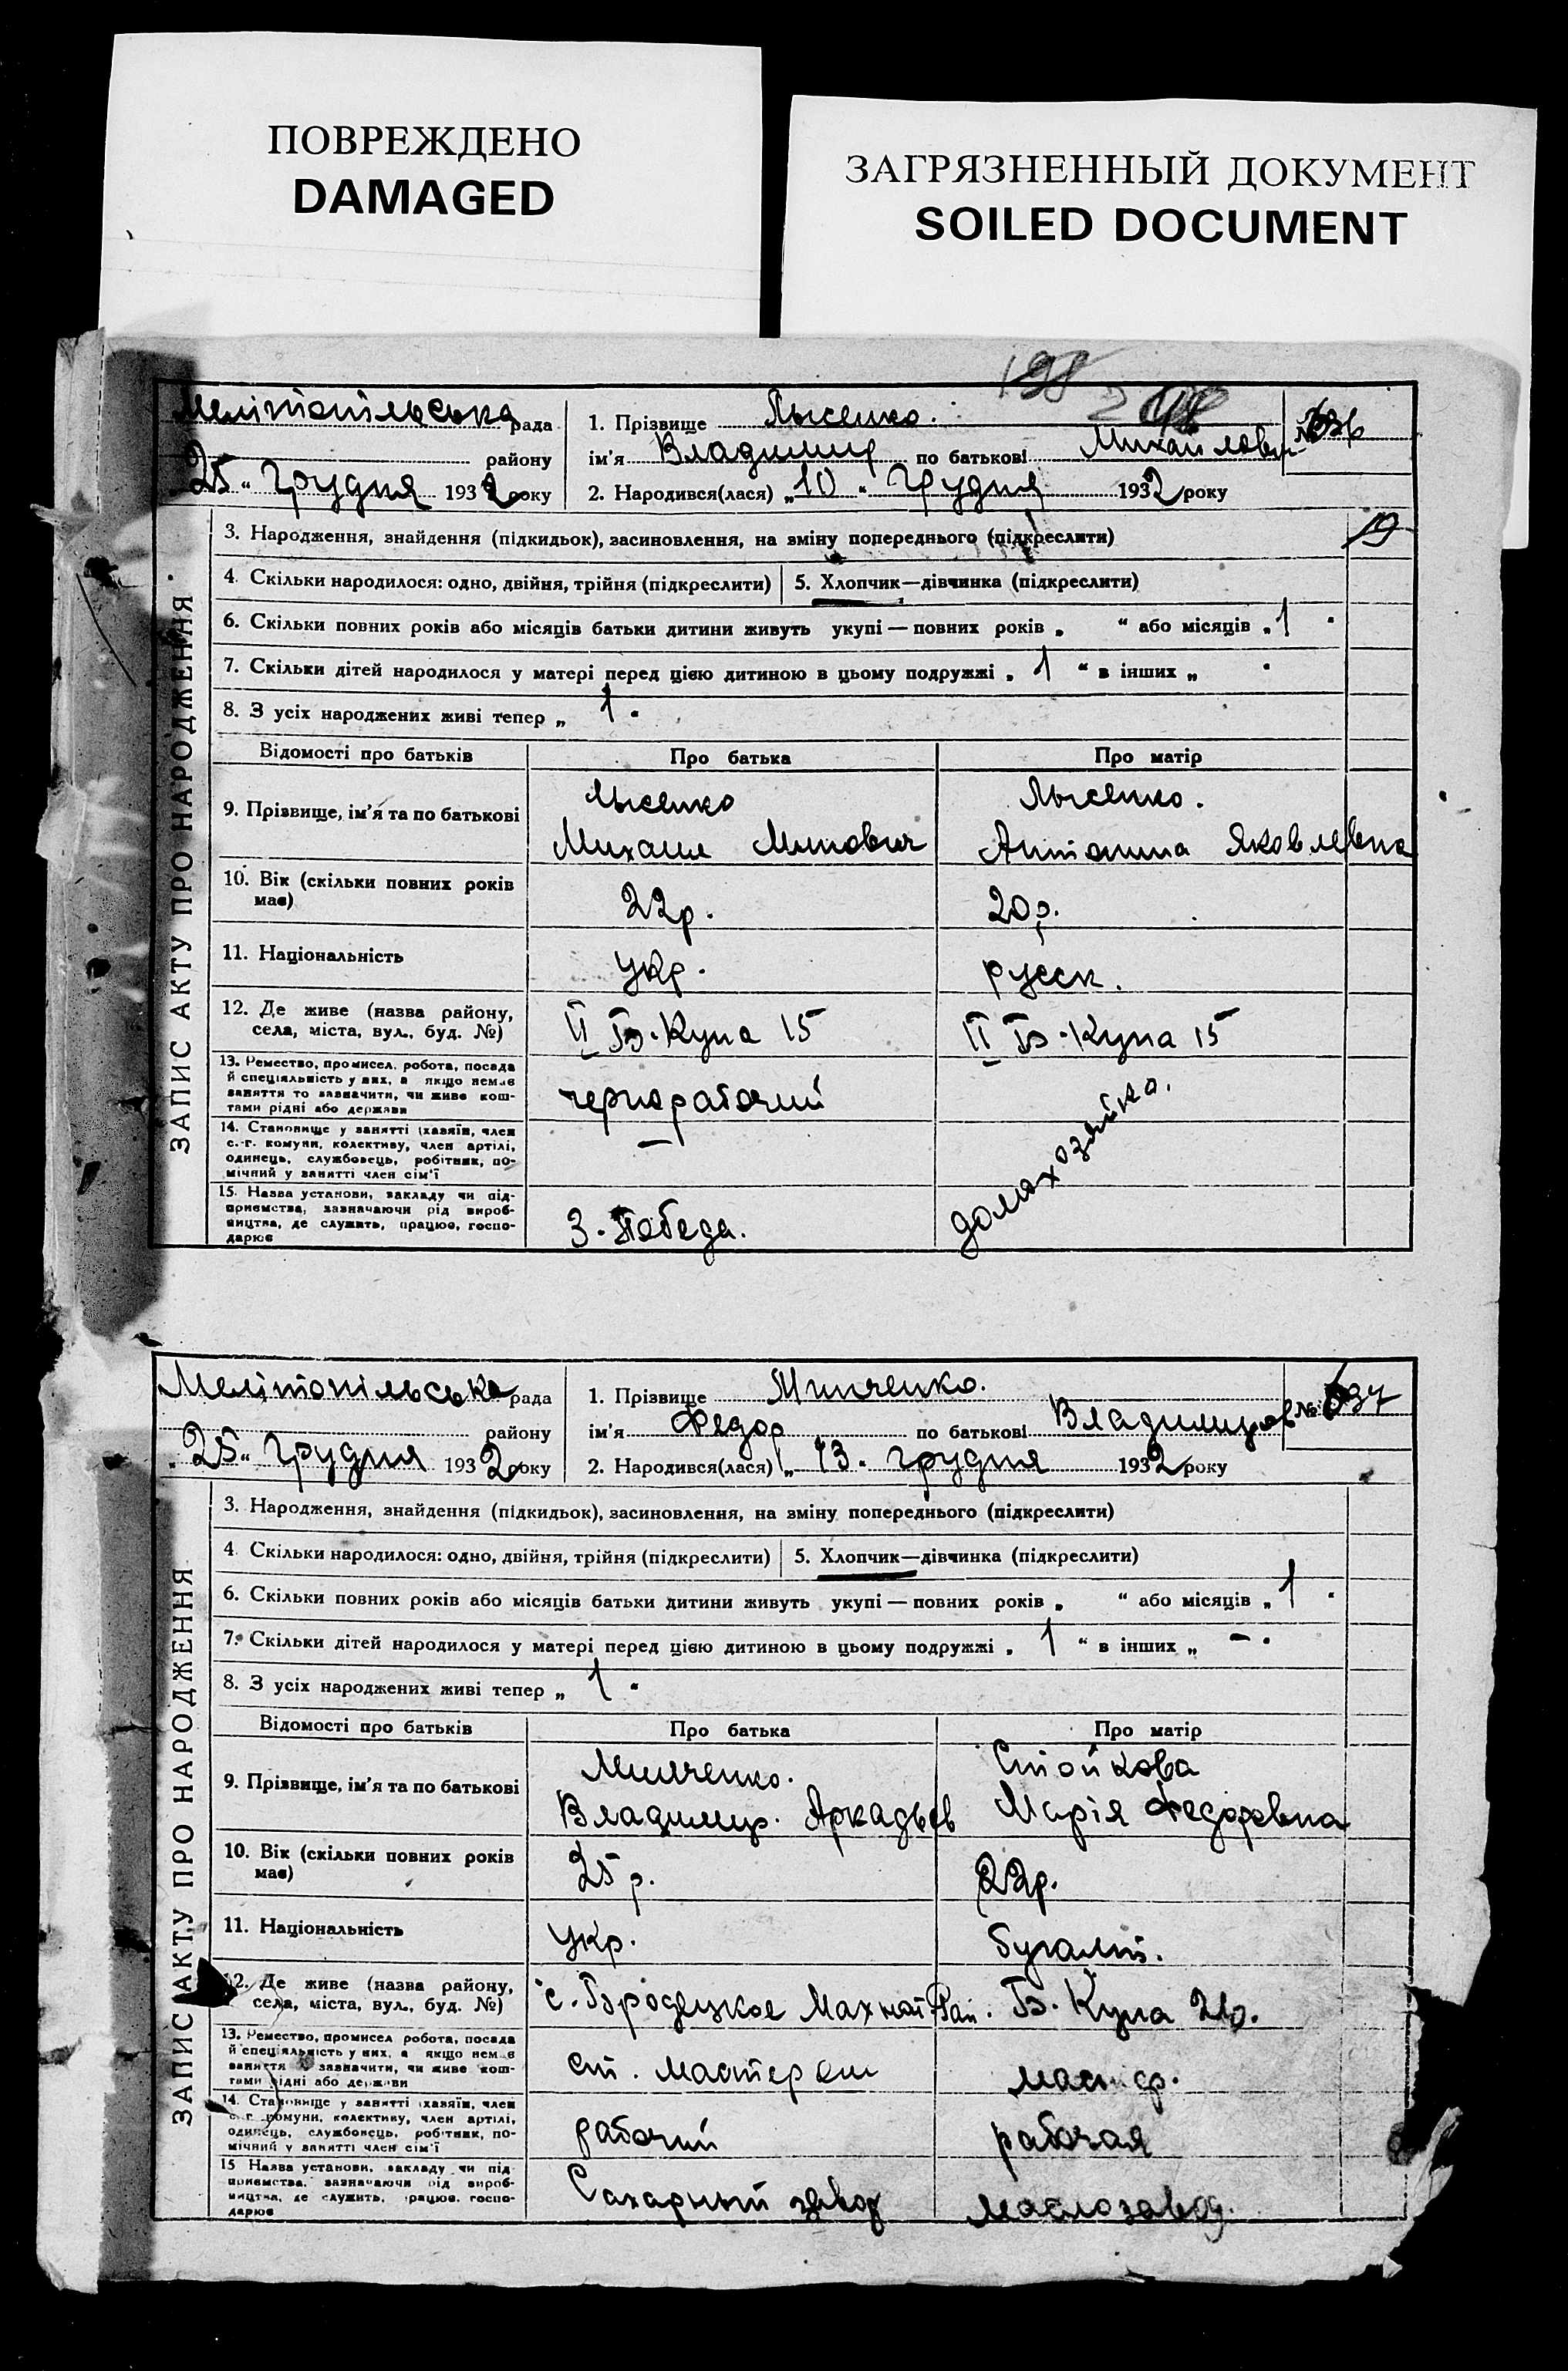 ПОВРЕЖДЕНО
DAMAGED
ЗАГРЯЗНЕННЫЙ ДОКУМЕНТ
SOILED DOCUMENT
198
Мелітопільська рада
району
"25" Грудня 1932 року
1. Прізвище Лысенко.
ім'я Владимир по батькові Михайлович
2. Народився(лася) "10" Грудня 1932 року
19
ЗАПИС АКТУ ПРО НАРОДЖЕННЯ
3. Народження, знайдення (підкидьок), засиновлення, на зміну попереднього (підкреслити)
4. Скільки народилося: одно, двійня, трійня (підкреслити) 5. Хлопчик—дівчинка (підкреслити)
6. Скільки повних років або місяців батьки дитини живуть укупі — повних років „ “ або місяців „ 1 “
7. Скільки дітей народилося у матері перед цією дитиною в цьому подружжі „ 1 “ в інших „ “
8. З усіх народжених живі тепер „ 1 “
Відомості про батьків Про батька Про матір
9. Прізвище, ім'я та по батькові
Лысенко
Михаил Минович
Лысенко.
Антонина Яковлевна
10. Вік (скільки повних років має)
22р. 20р.
11. Національність укр. русск.
12. Де живе (назва району,
села, міста, вул., буд. №)
II Б. Купа 15 II Б. Купа 15
13. Ремество, промисел, робота, посада
й спеціяльність у них, а якщо немає
заняття то зазначити, чи живе кош-
тами рідні або держави
чернорабочий
домахозяйка.
14. Становище у занятті (хазяїн, член
с.-г. комуни, колективу, член артілі,
одинець, службовець, робітник, по-
мічний у занятті член сім'ї
—
15. Назва установи, закладу чи під-
приємства, зазначаючи рід вироб-
ництва, де служить, працює, госпо-
дарює
З. Победа.
Мелітопільська рада
району
"25" Грудня 1932 року
1. Прізвище Минченко.
ім'я Федор по батькові Владимиров
2. Народився(лася) "13" грудня 1932 року
№ 637
ЗАПИС АКТУ ПРО НАРОДЖЕННЯ
3. Народження, знайдення (підкидьок), засиновлення, на зміну попереднього (підкреслити)
4. Скільки народилося: одно, двійня, трійня (підкреслити) 5. Хлопчик—дівчинка (підкреслити)
6. Скільки повних років або місяців батьки дитини живуть укупі — повних років „ “ або місяців „ 1 “
7. Скільки дітей народилося у матері перед цією дитиною в цьому подружжі „ 1 “ в інших „ – “
8. З усіх народжених живі тепер „ 1 “
Відомості про батьків Про батька Про матір
9. Прізвище, ім'я та по батькові
Минченко.
Владимир. Аркадьев
Стойкова
Марія Федоровна
10. Вік (скільки повних років має)
25 р. 22р.
11. Національність укр.
12. Де живе (назва району,
села, міста, вул., буд. №)
с. Бродецкое Махнат Рай. Б. Купа
13. Ремество, промисел робота, посада
й спеціяльність у них, а якщо немає
заняття зазначити, чи живе кош-
тами рідні або держави
ст. мастер
14. Становище у занятті (хазяїн, член
с.-г. комуни, колективу, член артілі,
одинець, службовець, робітник, по-
мічний у занятті член сім'ї
рабочий рабочая
15 Назва установи, закладу чи під-
приємства, зазначаючи рід вироб-
ництва, де служить, працює, госпо-
дарює
Сахарный завод маслозавод.